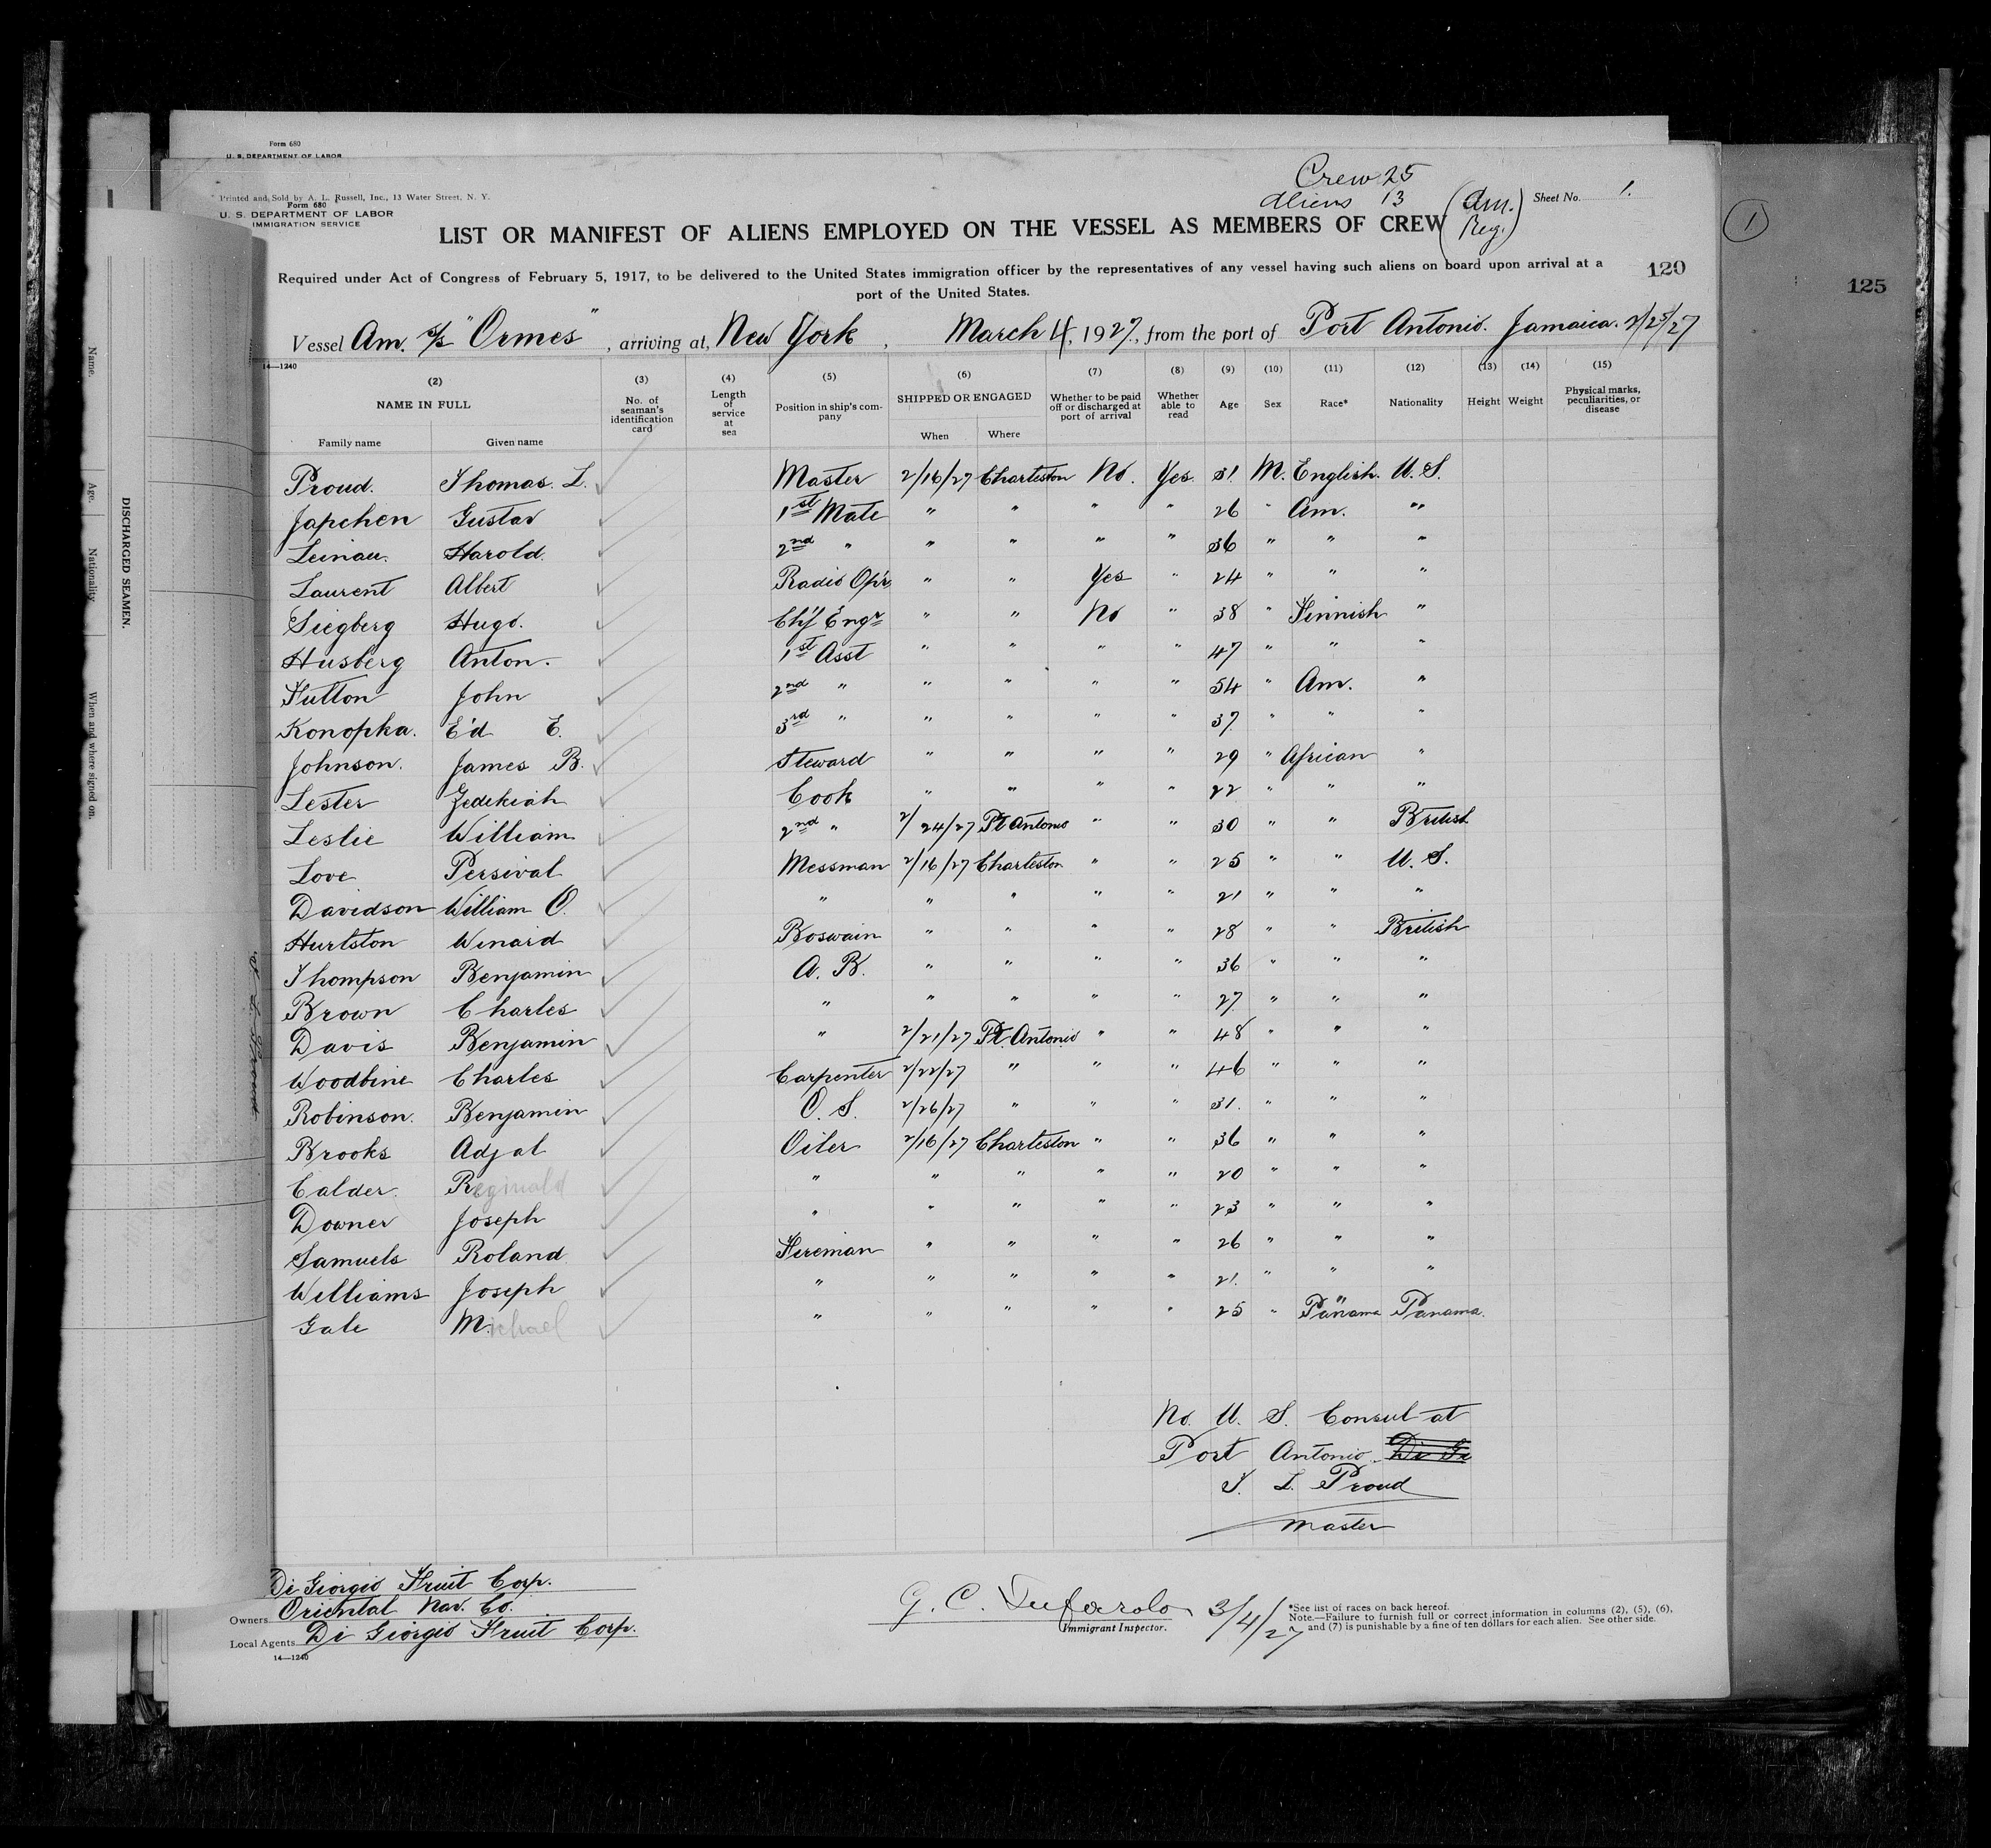 Form 680
U. S. DEPARTMENT OF LABOR
Printed and Sold by A. L. Russell, Inc., 13 Water Street, N. Y.
Form 680
U. S. DEPARTMENT OF LABOR
IMMIGRATION SERVICE
Crew 25
Aliens 13
(Am. Reg.)
Sheet No. 1.
1
LIST OR MANIFEST OF ALIENS EMPLOYED ON THE VESSEL AS MEMBERS OF CREW
Required under Act of Congress of February 5, 1917, to be delivered to the United States immigration officer by the representatives of any vessel having such aliens on board upon arrival at a
port of the United States.
120
125
Vessel Am. s/s "Ormes", arriving at, New York, March 4, 1927, from the port of Port Antonio. Jamaica. 2/25/27
14—1240
(2) (3) (4) (5) (6) (7) (8) (9) (10) (11) (12) (13) (14) (15)
NAME IN FULL No. of seaman's identification card Length of service at sea Position in ship's company SHIPPED OR ENGAGED Whether to be paid off or discharged at port of arrival Whether able to read Age Sex Race* Nationality Height Weight Physical marks, peculiarities, or disease
Family name Given name When Where
Proud. Thomas. L. Master 2/16/27 Charleston No. Yes. 31. M. English. U. S.
Japchen Gustav 1st Mate " " " " 26 " Am. "
Leinau. Harold. 2nd " " " " " 36 " " "
Laurent Albert Radio Op'r. " " Yes " 24 " " "
Siegberg Hugo. Ch'f Engr " " No " 38 " Finnish "
Husberg Anton. 1st Asst " " " " 47 " " "
Futton John 2nd " " " " " 54 " Am. "
Konopka. E'd E. 3rd " " " " " 37 " " "
Johnson. James B. Steward " " " " 29 " African "
Lester Zedekiah Cook " " " " 22 " " "
Leslie William 2nd " 2/24/27 Pt Antonio " " 30 " " British
Love Persival Messman 2/16/27 Charleston " " 25 " " U. S.
Davidson William O. " " " " " 21 " " "
Hurlston Winard Boswain " " " " 28 " " British
Thompson Benjamin A. B. " " " " 36 " " "
Brown Charles " " " " " 27 " " "
Davis Benjamin " 2/21/27 Pt. Antonio " " 48 " " "
Woodbine Charles Carpenter 2/22/27 " " " 46 " " "
Robinson. Benjamin O. S. 2/26/27 " " " 31. " " "
Brooks Adjal Oiler 2/16/27 Charleston " " 36 " " "
Calder. Reginald " " " " " 20 " " "
Downer Joseph " " " " " 23 " " "
Samuels Roland Fireman " " " " 26 " " "
Williams Joseph " " " " " 21. " " "
Gale Michael " " " " " 25 " " Panama Panama.
No. U. S. Consul at
Port Antonio. Di Gi
T. L. Proud
Master
Di Giorgio Fruit Corp.
Owners Oriental Nav. Co.
Local Agents Di Giorgio Fruit Corp.
14—1240
G. C.
3/4/27
Immigrant Inspector.
*See list of races on back hereof.
Note.—Failure to furnish full or correct information in columns (2), (5), (6),
and (7) is punishable by a fine of ten dollars for each alien. See other side.
DISCHARGED SEAMEN.
Name.
Age.
Nationality.
When and where signed on.